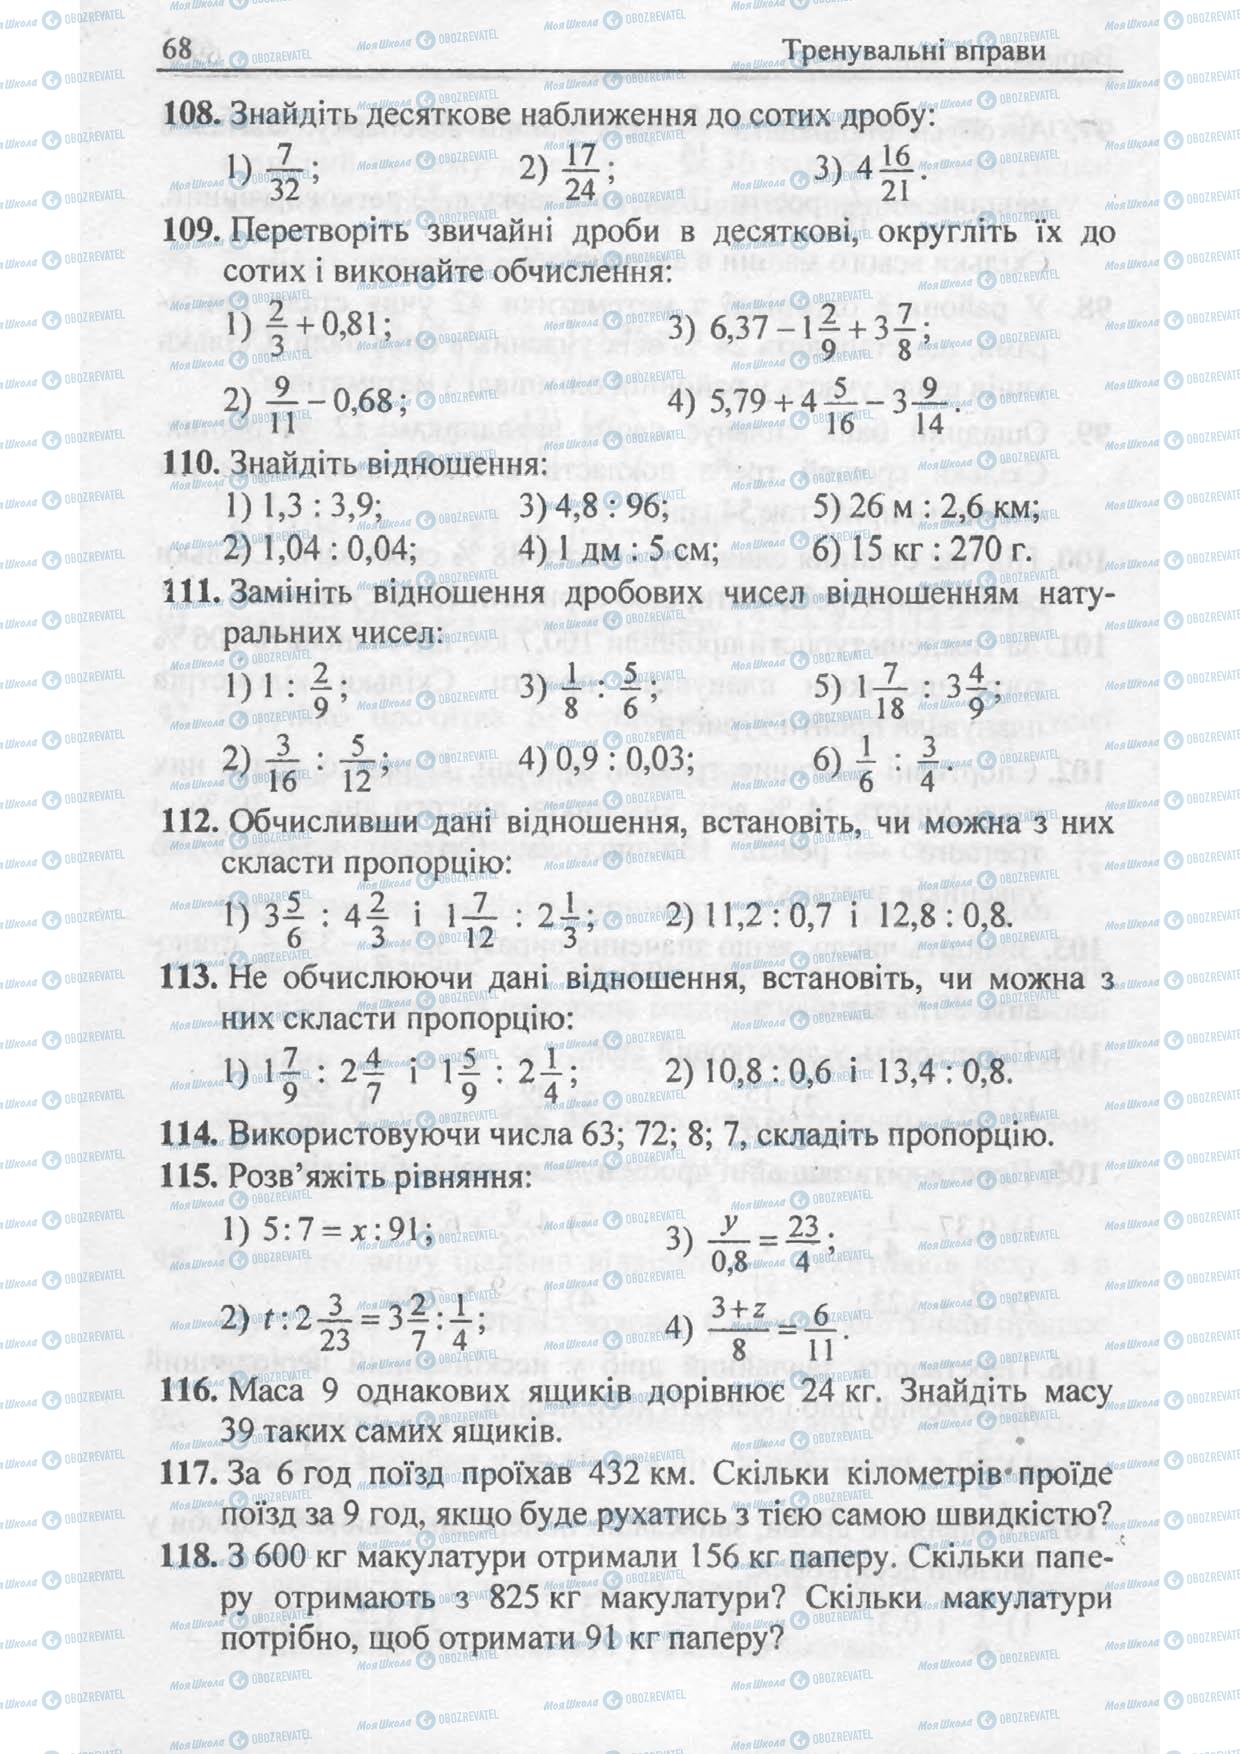 68 Тренувальні вправи
108. Знайдіть десяткове наближення до сотих дробу:
1) 7/32; 2) 17/24; 3) 4 16/21.
109. Перетворіть звичайні дроби в десяткові, округліть їх до
сотих і виконайте обчислення:
1) 2/3 + 0,81; 3) 6,37 – 1 2/9 + 3 7/8;
2) 9/11 – 0,68; 4) 5,79 + 4 5/16 – 3 9/14.
110. Знайдіть відношення:
1) 1,3 : 3,9; 3) 4,8 : 96; 5) 26 м : 2,6 км;
2) 1,04 : 0,04; 4) 1 дм : 5 см; 6) 15 кг : 270 г.
111. Замініть відношення дробових чисел відношенням нату-
ральних чисел:
1) 1 : 2/9; 3) 1/8 : 5/6; 5) 1 7/18 : 3 4/9;
2) 3/16 : 5/12; 4) 0,9 : 0,03; 6) 1/6 : 3/4.
112. Обчисливши дані відношення, встановіть, чи можна з них
скласти пропорцію:
1) 3 5/6 : 4 2/3 і 1 7/12 : 2 1/3; 2) 11,2 : 0,7 і 12,8 : 0,8.
113. Не обчислюючи дані відношення, встановіть, чи можна з
них скласти пропорцію:
1) 1 7/9 : 2 4/7 і 1 5/9 : 2 1/4; 2) 10,8 : 0,6 і 13,4 : 0,8.
114. Використовуючи числа 63; 72; 8; 7, складіть пропорцію.
115. Розв’яжіть рівняння:
1) 5 : 7 = x : 91; 3) y/0,8 = 23/4;
2) t : 2 3/23 = 3 2/7 : 1/4; 4) (3 + z)/8 = 6/11.
116. Маса 9 однакових ящиків дорівнює 24 кг. Знайдіть масу
39 таких самих ящиків.
117. За 6 год поїзд проїхав 432 км. Скільки кілометрів проїде
поїзд за 9 год, якщо буде рухатись з тією самою швидкістю?
118. З 600 кг макулатури отримали 156 кг паперу. Скільки папе-
ру отримають з 825 кг макулатури? Скільки макулатури
потрібно, щоб отримати 91 кг паперу?
МояШкола OBOZREVATEL